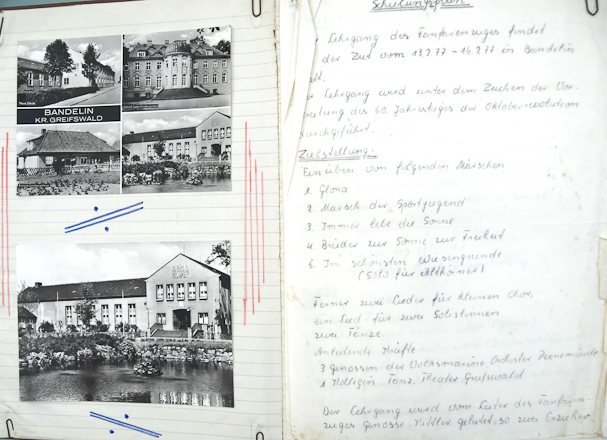 Neue Schule
BANDELIN
KR. GREIFSWALD
Schulungsplan
Lehrgang des Fanfarenzuges findet
der Zeit vom 13.2.77 - 16.2.77 in Bandelin
Lehrgang wird unter dem Zeichen der Vor-
des 60. Jahrestages der Oktoberrevolution
durchgeführt.
Zielstellung:
Einüben von folgenden Märschen
1. Gloria
2. Marsch der Sportjugend
3. Immer lebe die Sonne
4. Brüder zur Sonne zur Freiheit
5. Im schönsten Wiesengrunde
(Solo für Althörner)
Ferner zwei Lieder für kleinen Chor,
ein Lied für zwei Solistinnen
zwei Tänze
Anleitende Kräfte
3 Genossen der Volksmarine Orchester Peenemünde
1 Kollegin Tanz. Theater Greifswald
Der Lehrgang wird vom Leiter des Fanfaren-
zuges Genosse geleitet, so zwei Erzieher.